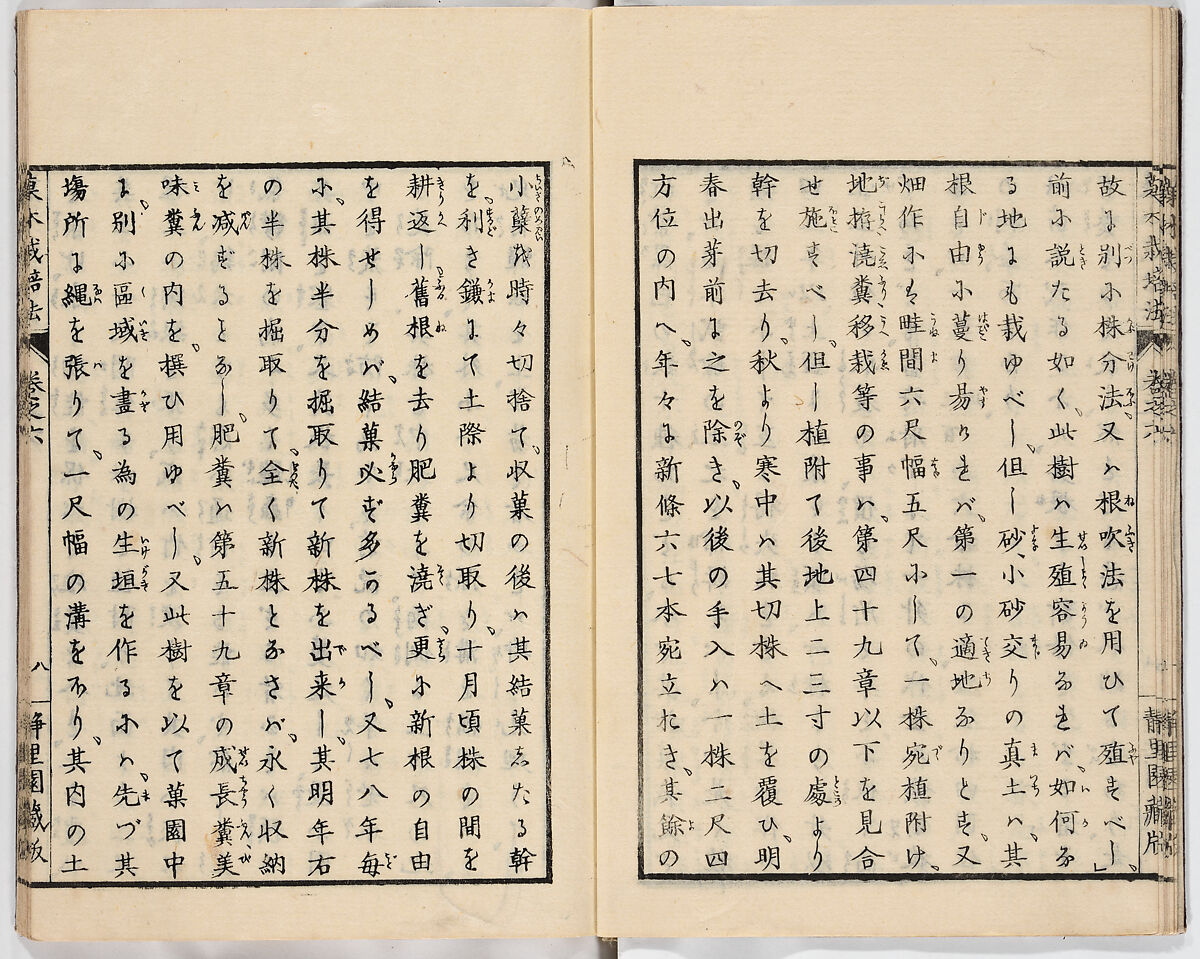 故に別に株分法、又ハ根吹法を用ひて殖すべし」
前に説たる如く、此樹ハ生殖容易なれバ、如何な
る地にも栽ゆべし、但し砂、小砂交りの真土ハ、其
根自由に蔓り易けれバ、第一の適地なりとす、又
畑作にも畦間六尺幅五尺にして、一株宛植附け、
地拵澆糞移栽等の事ハ、第四十九章以下を見合
せ施すべし、但し植附て後地上二三寸の處より
幹を切去り、秋より寒中ハ其切株へ土を覆ひ、明
春出芽前に之を除き、以後の手入ハ一株二尺四
方位の内へ、年々に新條六七本宛立おき、其餘の
小蘖を時々切捨て、収菓の後ハ其結菓志たる幹
を、利き鎌にて土際より切取り、十月頃株の間を
耕返し、舊根を去り肥糞を澆ぎ、更に新根の自由
を得せしめバ、結菓必ず多かるべし、又七八年毎
に、其株半分を掘取りて新株を出来し、其明年右
の半株を掘取りて、全く新株となさバ、永く収納
を減ずることなし、肥糞ハ第五十九章の成長糞美
味糞の内を、撰ひ用ゆべし、又此樹を以て菓園中
に、別に區域を畫る為の生垣を作るにハ、先づ其
場所に縄を張りて、一尺幅の溝をホり、其内の土
菓木栽培法
巻之六
八
静里園蔵版